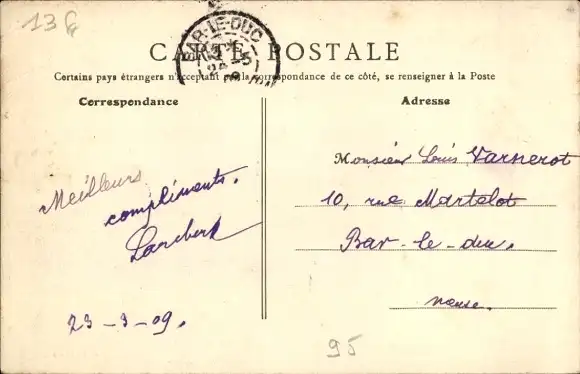 136
BAR-LE-DUC
CARTE POSTALE
Certains pays étrangers n'acceptant pas la correspondance de ce côté, se renseigner à la Poste
Correspondance
Adresse
Meilleurs
compliments.
Lambert
23-3-09.
Monsieur Louis Varnerot
10, rue Martelot
Bar-le-duc.
Meuse.
95